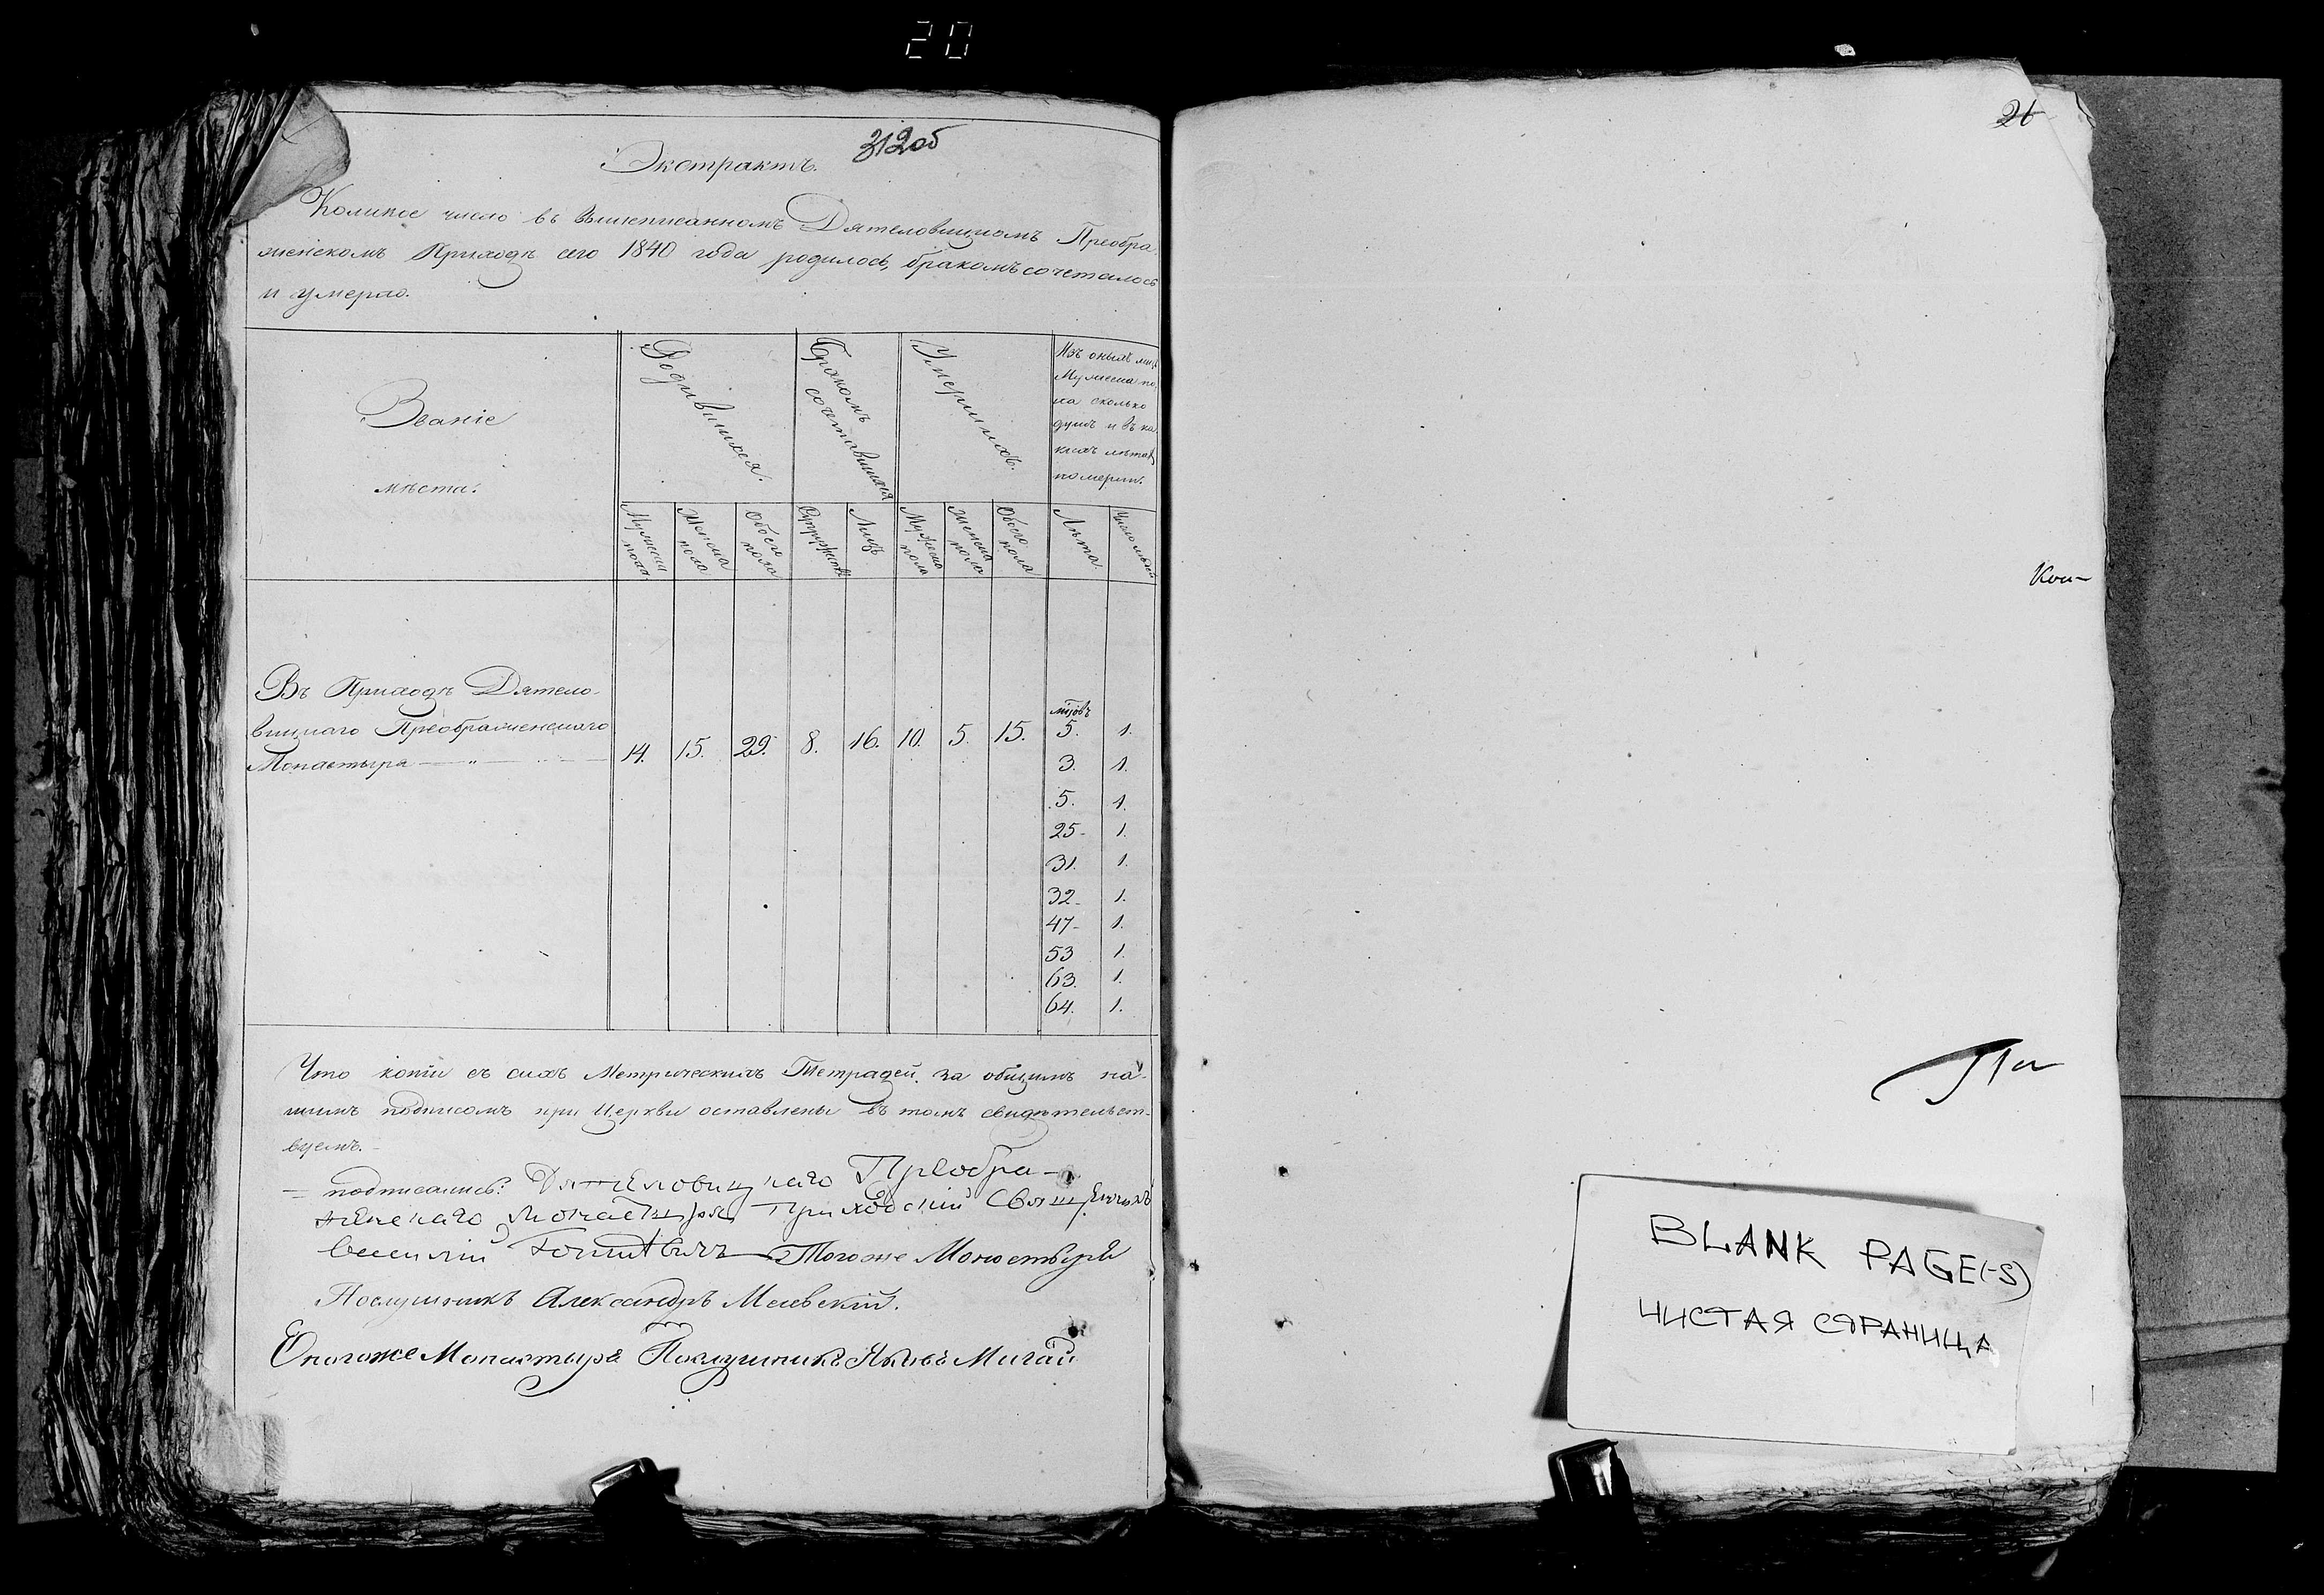 20
312об
Экстрактъ.
Коликое число въ вышеписанномъ Дятеловицкомъ Преобра-
женскомъ Приходѣ сего 1840 года родилось, бракомъ сочеталось
и умерло.
Званіе
мѣста.
Родившихся.
Бракомъ
сочетавшихся
Умершихъ.
Изъ оныхъ
Мужеска по-
ла сколько
душъ и въ ка-
кихъ лѣтахъ
померли.
Мужеска пола
Женска пола
Обоего пола
Супружествъ
Лицъ
Мужеска пола
Женска пола
Обоего пола
Лѣта.
Число
Въ Приходѣ Дятело-
вицкаго Преображенскаго
Монастыря
14. 15. 29. 8. 16. 10. 5. 15. 5. 1.
3. 1.
5. 1.
25- 1.
31. 1.
32- 1.
47- 1.
53 1.
63. 1.
64. 1.
Что копіи съ сихъ Метрическихъ Тетрадей за общимъ на-
шимъ подписомъ при Церкви оставлены въ томъ свидѣтельст-
вуемъ.-
подписались: Дятеловицкаго Преобра-
женскаго Монастыря Приходскій Священникъ
Василій Тогоже Монастыря
Послушникъ Александръ
Оногоже Монастыря Послушникъ Мигай
26
Кон-
BLANK PAGE(-S)
ЧИСТАЯ СТРАНИЦА